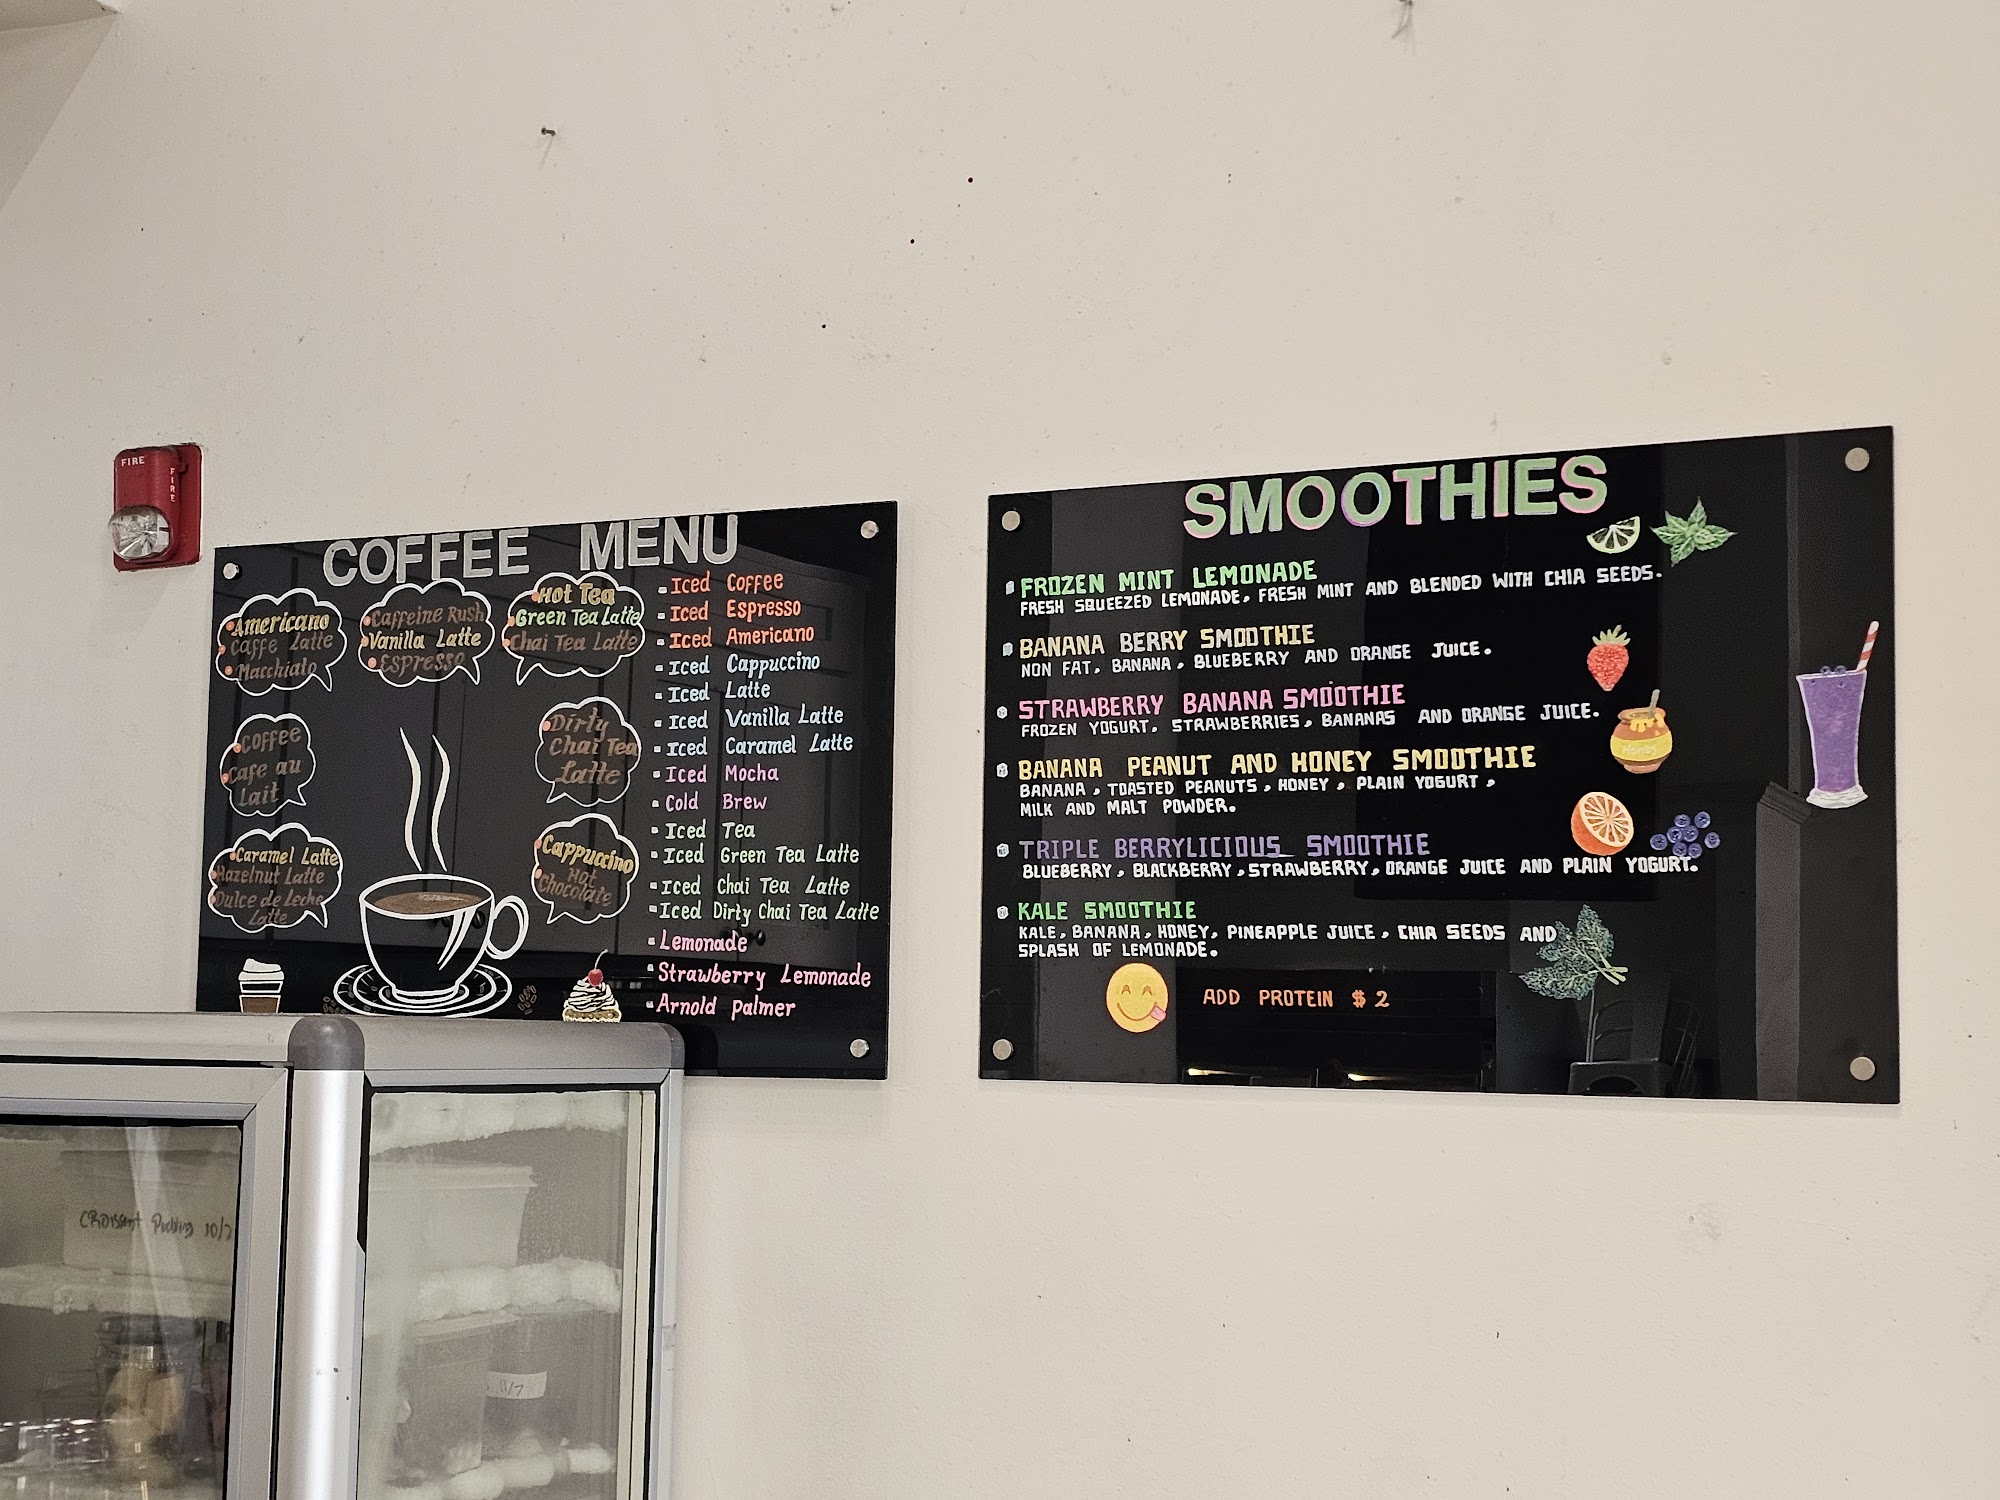 FIRE
FIRE
COFFEE MENU
Americano
Caffe Latte
Macchiato
Caffeine Rush
Vanilla Latte
Espresso
Hot Tea
Green Tea Latte
Chai Tea Latte
Coffee
Cafe au
Lait
Dirty
Chai Tea
Latte
Caramel Latte
Hazelnut Latte
Dulce de Leche
Latte
Cappuccino
Hot
Chocolate
Iced Coffee
Iced Espresso
Iced Americano
Iced Cappuccino
Iced Latte
Iced Vanilla Latte
Iced Caramel Latte
Iced Mocha
Cold Brew
Iced Tea
Iced Green Tea Latte
Iced Chai Tea Latte
Iced Dirty Chai Tea Latte
Lemonade
Strawberry Lemonade
Arnold palmer
SMOOTHIES
FROZEN MINT LEMONADE
FRESH SQUEEZED LEMONADE, FRESH MINT AND BLENDED WITH CHIA SEEDS.
BANANA BERRY SMOOTHIE
NON FAT, BANANA, BLUEBERRY AND ORANGE JUICE.
STRAWBERRY BANANA SMOOTHIE
FROZEN YOGURT, STRAWBERRIES, BANANAS AND ORANGE JUICE.
BANANA PEANUT AND HONEY SMOOTHIE
BANANA, TOASTED PEANUTS, HONEY, PLAIN YOGURT,
MILK AND MALT POWDER.
Honey
TRIPLE BERRYLICIOUS SMOOTHIE
BLUEBERRY, BLACKBERRY, STRAWBERRY, ORANGE JUICE AND PLAIN YOGURT.
KALE SMOOTHIE
KALE, BANANA, HONEY, PINEAPPLE JUICE, CHIA SEEDS AND
SPLASH OF LEMONADE.
ADD PROTEIN $2
CROissant Pudding 10/2
11/7